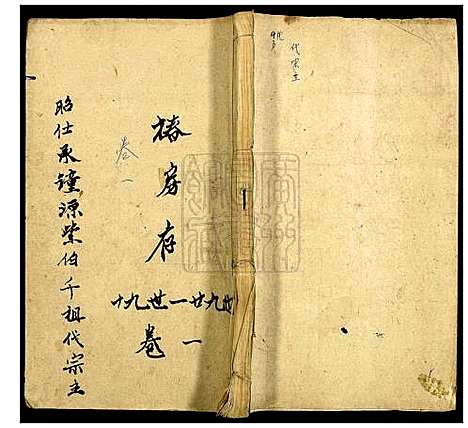 代宗主
椿房存
卷一
十九世一廿九世
卷一
昭仕承鐘源紫伯千祖代宗主